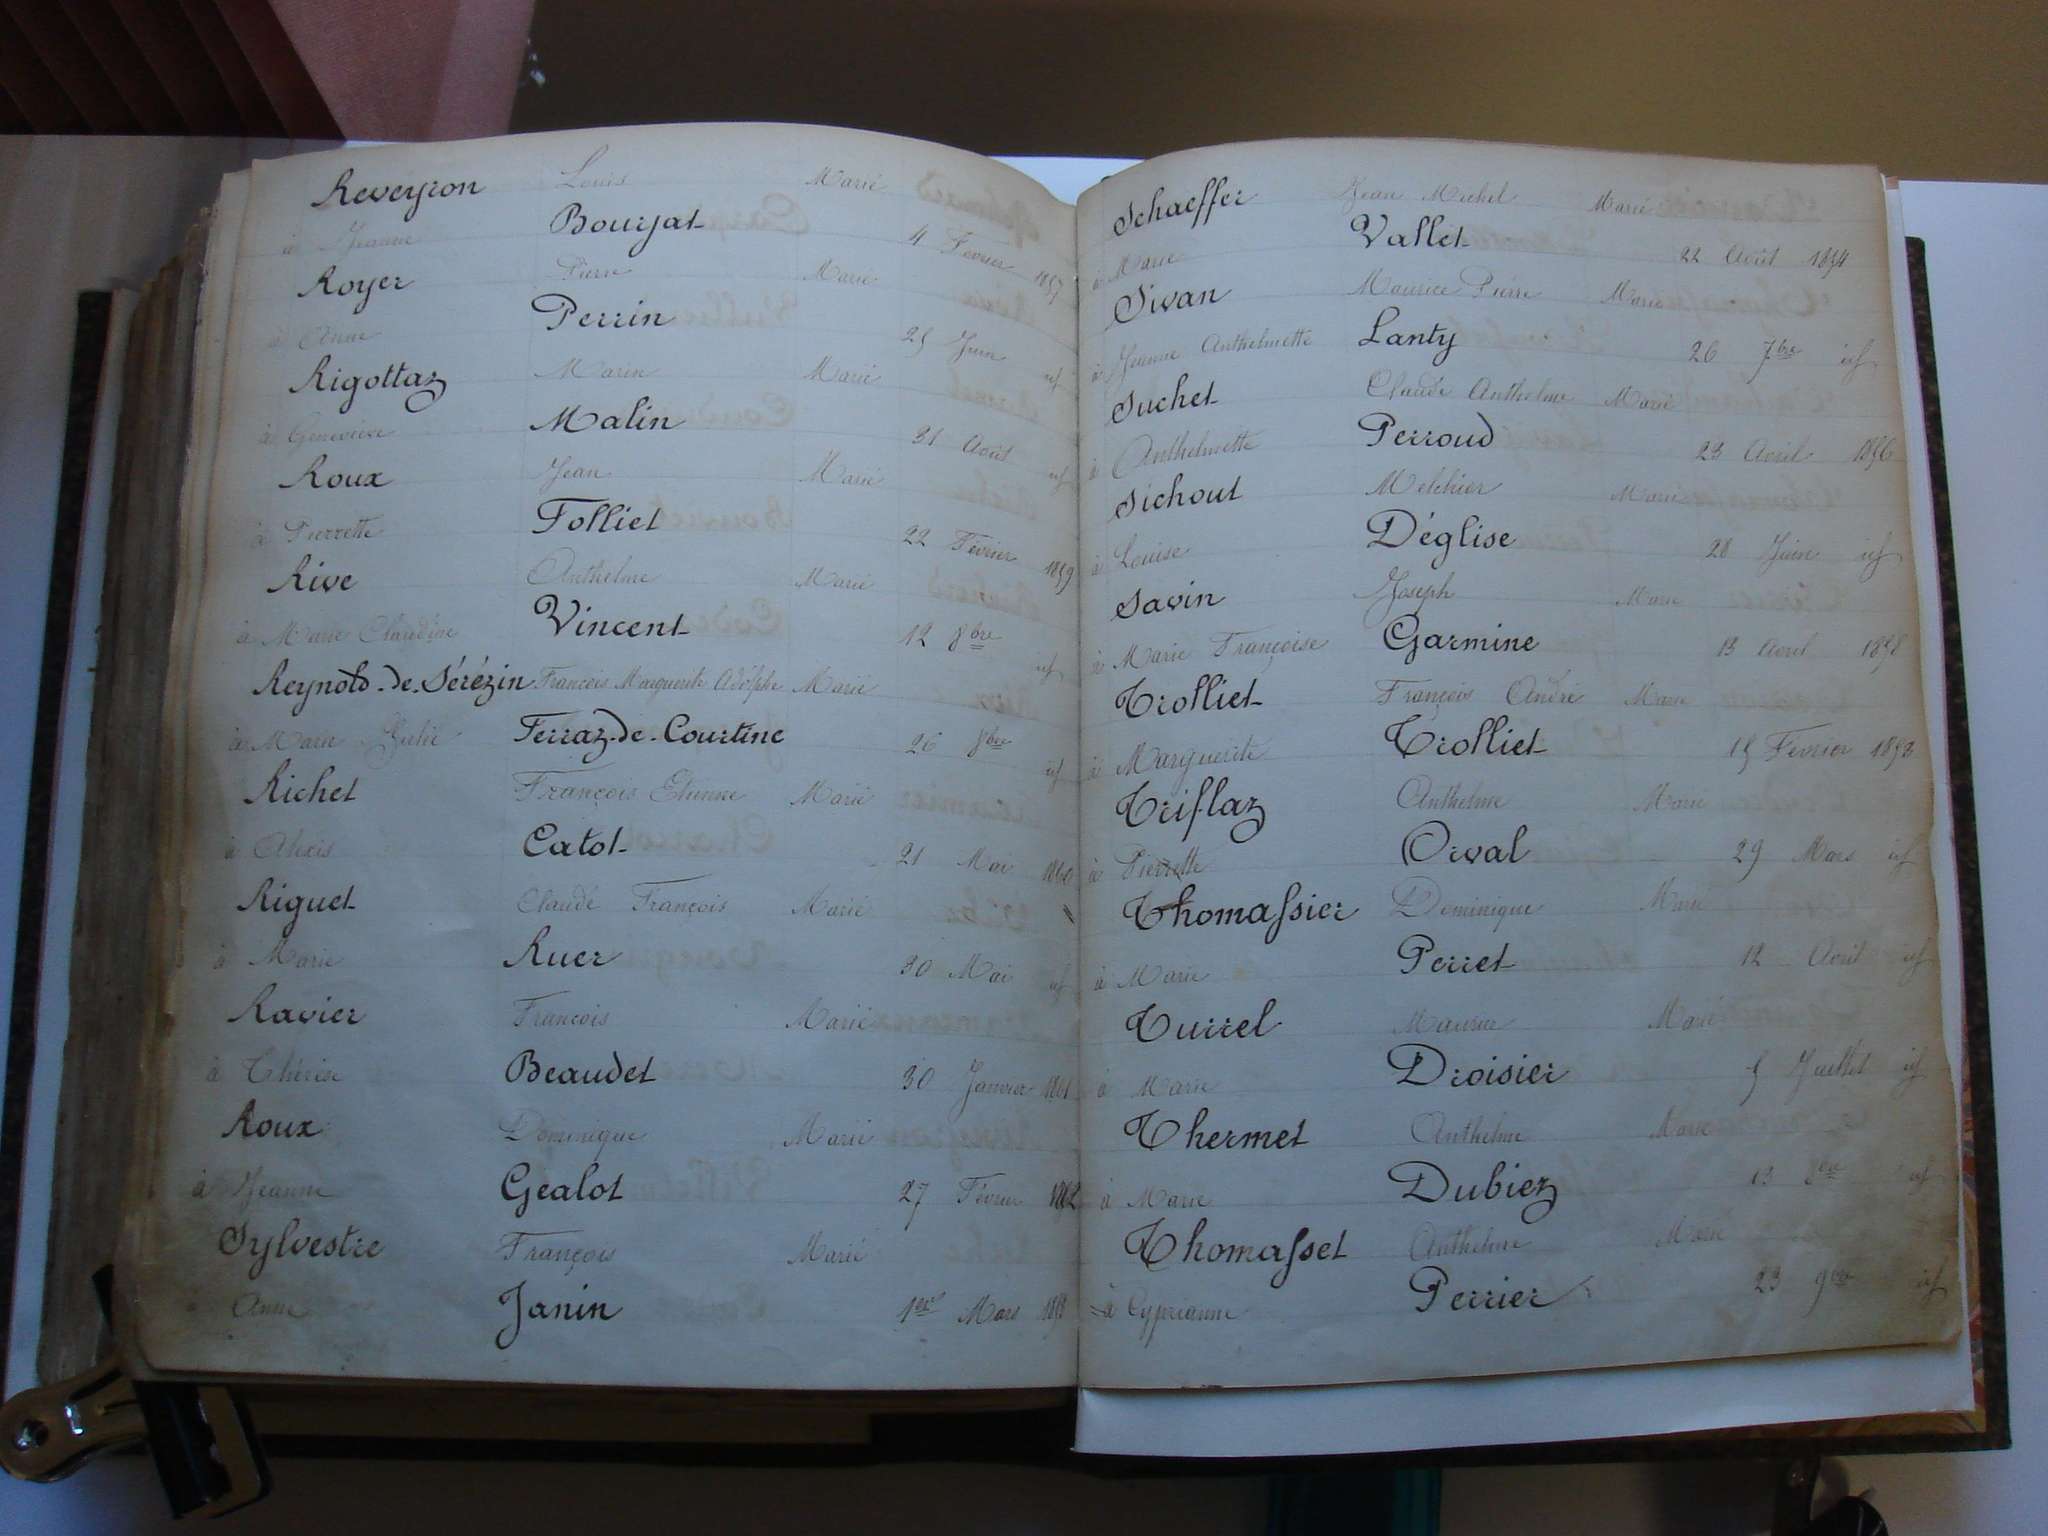 Reveyron Louis Marié
à Jeanne Bourjat 4 Fevrier 1857
Royer Pierre Marié
à Anne Perrin 25 Juin id
Rigottaz Marin Marié
à Geneviève Malin 31 Août id
Roux Jean Marié
à Pierrette Folliet 22 Février 1859
Rive Anthelme Marié
à Marie Claudine Vincent 12 8bre id
Reynold-de-Sérézin François Marguerite Adolphe Marié
à Marie Julie Ferraz-de-Courtine 26 8bre id
Richet François Etienne Marié
à Alexis Catot 21 Mai 1860
Riguet Claude François Marié
à Marie Ruer 30 Mai id
Ravier François Marié
à Thérèse Beaudet 30 Janvier 1861
Roux Dominique Marié
à Jeanne Gealot 27 Février 1862
Sylvestre François Marié
à Anne Janin 1er Mars
Schaeffer Jean Michel Marié
à Marie Vallet 22 Août 1854
Sivan Maurice Pierre Marié
à Jeanne Anthelmette Lanty 26 7bre id
Suchet Claude Anthelme Marié
à Anthelmette Perroud 23 Avril 1856
Sichout Melchier Marié
à Louise Déglise 28 Juin id
Savin Joseph Marié
à Marie Françoise Garmine 13 Avril 1858
Trolliet François André Marié
à Marguerite Trolliet 15 Février 1853
Triflaz Anthelme Marié
à Pierrette Orval 29 Mars id
Thomassier Dominique Marié
à Marie Perret 12 Avril id
Turrel Maurice Marié
à Marie Droisier 5 Juillet id
Thermet Anthelme Marié
à Marie Dubiez 13 8bre id
Thomasset Anthelme Marié
à Cyprianne Perrier 23 9bre id